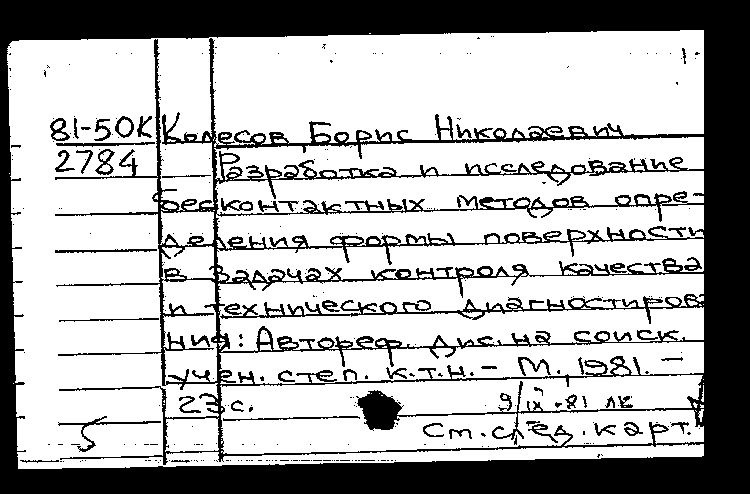 81-50К Колесов, Борис Николаевич
2784 Разработка и исследование
бесконтактных методов опре-
деления формы поверхности
в задачах контроля качества
и технического диагностирова
ния: Автореф. дис. на соиск.
учен. степ. к.т.н. - М., 1981. -
23 с.
9/IX-81 ЛК
5 См. след. карт.